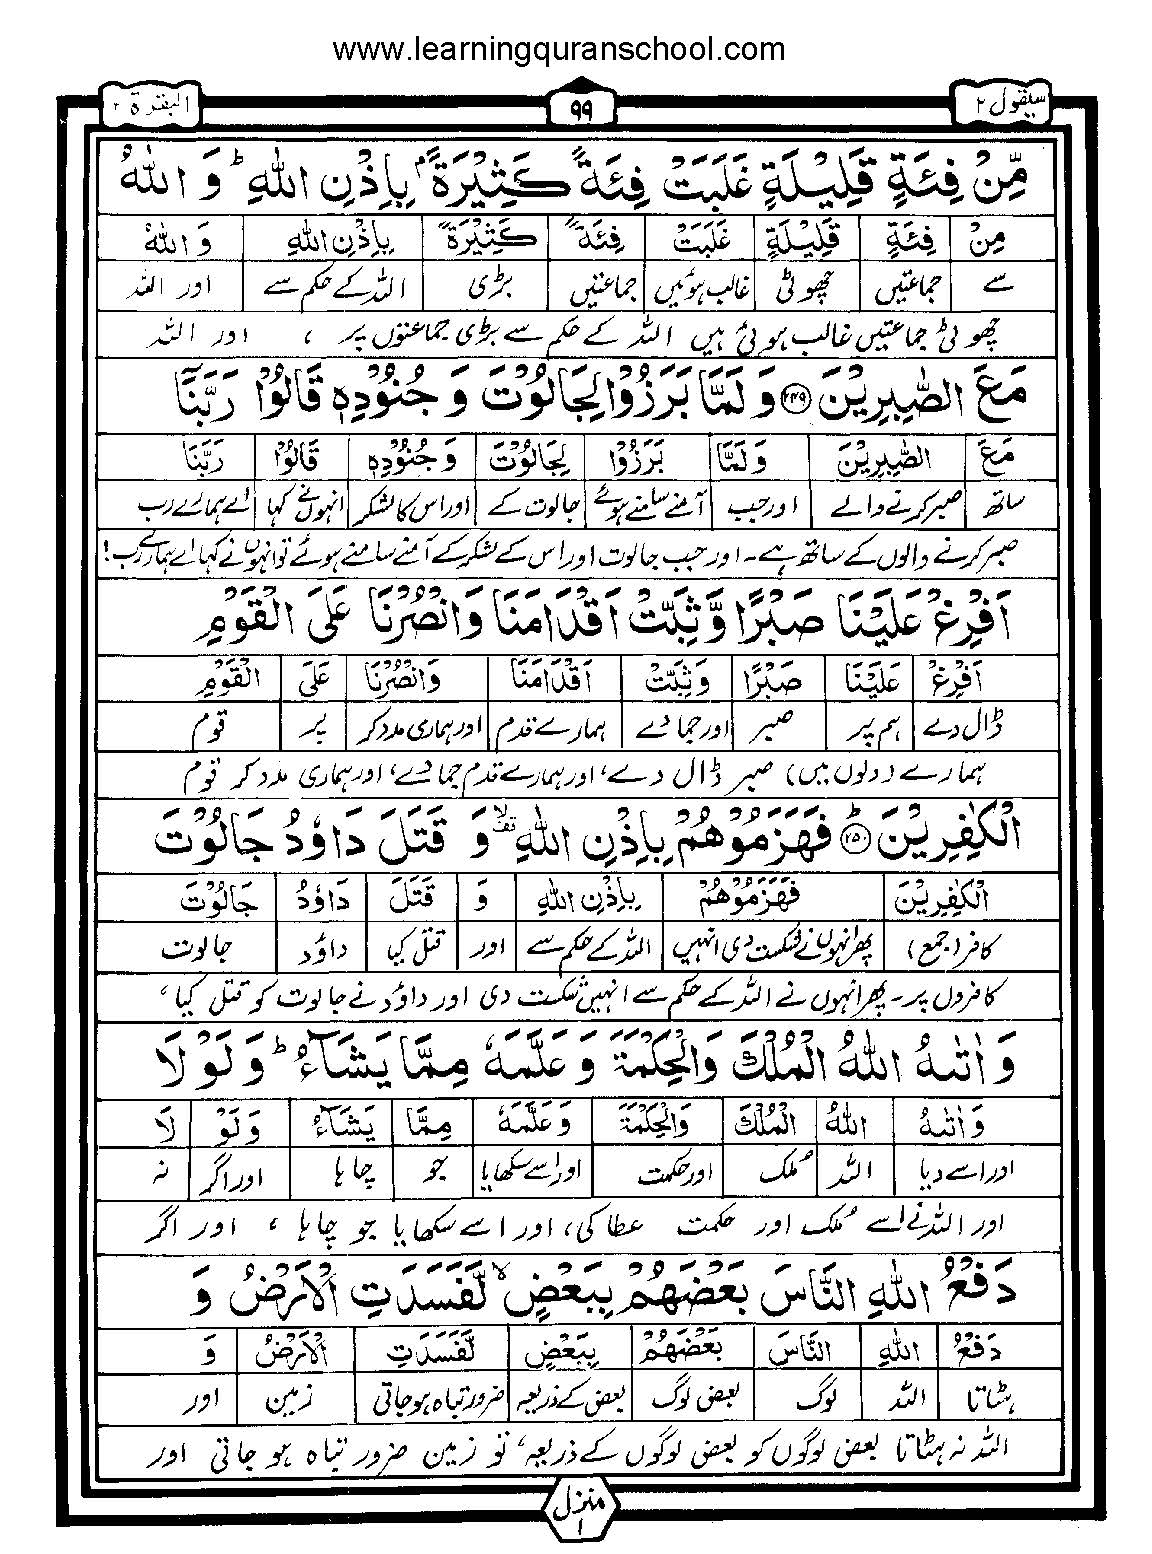 www.learningquranschool.com
سیقول ۲ ۹۹ البقرة ۲
مِّنْ فِئَةٍ قَلِيْلَةٍ غَلَبَتْ فِئَةً كَثِيْرَةً ۢ بِاِذْنِ اللّٰهِ ؕ وَ اللّٰهُ
مِنْ فِئَةٍ قَلِيْلَةٍ غَلَبَتْ فِئَةً كَثِيْرَةً بِاِذْنِ اللّٰهِ وَ اللّٰهُ
سے جماعتیں چھوٹی غالب ہوئیں جماعتیں بڑی اللہ کے حکم سے اور اللہ
چھوٹی جماعتیں غالب ہوئی ہیں اللہ کے حکم سے بڑی جماعتوں پر ، اور اللہ
مَعَ الصّٰبِرِيْنَ ﴿۲۴۹﴾ وَ لَمَّا بَرَزُوْا لِجَالُوْتَ وَ جُنُوْدِهٖ قَالُوْا رَبَّنَاۤ
مَعَ الصّٰبِرِيْنَ وَ لَمَّا بَرَزُوْا لِجَالُوْتَ وَ جُنُوْدِهٖ قَالُوْا رَبَّنَاۤ
ساتھ صبر کرنے والے اور جب آمنے سامنے ہوئے جالوت کے اور اس کا لشکر انہوں نے کہا اے ہمارے رب
صبر کرنے والوں کے ساتھ ہے۔ اور جب جالوت اور اس کے لشکر کے آمنے سامنے ہوئے تو انہوں نے کہا اے ہمارے رب!
اَفْرِغْ عَلَيْنَا صَبْرًا وَّ ثَبِّتْ اَقْدَامَنَا وَ انْصُرْنَا عَلَى الْقَوْمِ
اَفْرِغْ عَلَيْنَا صَبْرًا وَ ثَبِّتْ اَقْدَامَنَا وَ انْصُرْنَا عَلَى الْقَوْمِ
ڈال دے ہم پر صبر اور جما دے ہمارے قدم اور ہماری مدد کر پر قوم
ہمارے (دلوں میں) صبر ڈال دے، اور ہمارے قدم جما دے، اور ہماری مدد کر قوم
الْكٰفِرِيْنَ ﴿۲۵۰﴾ؕ فَهَزَمُوْهُمْ بِاِذْنِ اللّٰهِ وَ قَتَلَ دَاوٗدُ جَالُوْتَ
الْكٰفِرِيْنَ فَهَزَمُوْهُمْ بِاِذْنِ اللّٰهِ وَ قَتَلَ دَاوٗدُ جَالُوْتَ
کافر (جمع) پھر انہوں نے شکست دی انہیں اللہ کے حکم سے اور قتل کیا داوٗد جالوت
کافروں پر۔ پھر انہوں نے اللہ کے حکم سے انہیں شکست دی اور داوٗد نے جالوت کو قتل کیا،
وَ اٰتٰىهُ اللّٰهُ الْمُلْكَ وَ الْحِكْمَةَ وَ عَلَّمَهٗ مِمَّا يَشَآءُ ؕ وَ لَوْ لَا
وَ اٰتٰىهُ اللّٰهُ الْمُلْكَ وَ الْحِكْمَةَ وَ عَلَّمَهٗ مِمَّا يَشَآءُ وَ لَوْ لَا
اور اسے دیا اللہ مُلک اور حکمت اور اسے سکھایا جو چاہا اور اگر نہ
اور اللہ نے اسے مُلک اور حکمت عطا کی، اور اسے سکھایا جو چاہا ، اور اگر
دَفْعُ اللّٰهِ النَّاسَ بَعْضَهُمْ بِبَعْضٍ ۙ لَّفَسَدَتِ الْاَرْضُ وَ
دَفْعُ اللّٰهِ النَّاسَ بَعْضَهُمْ بِبَعْضٍ لَّفَسَدَتِ الْاَرْضُ وَ
ہٹاتا اللہ لوگ بعض لوگ بعض کے ذریعہ ضرور تباہ ہو جاتی زمین اور
اللہ نہ ہٹاتا بعض لوگوں کو بعض لوگوں کے ذریعہ، تو زمین ضرور تباہ ہو جاتی اور
منزل ۱